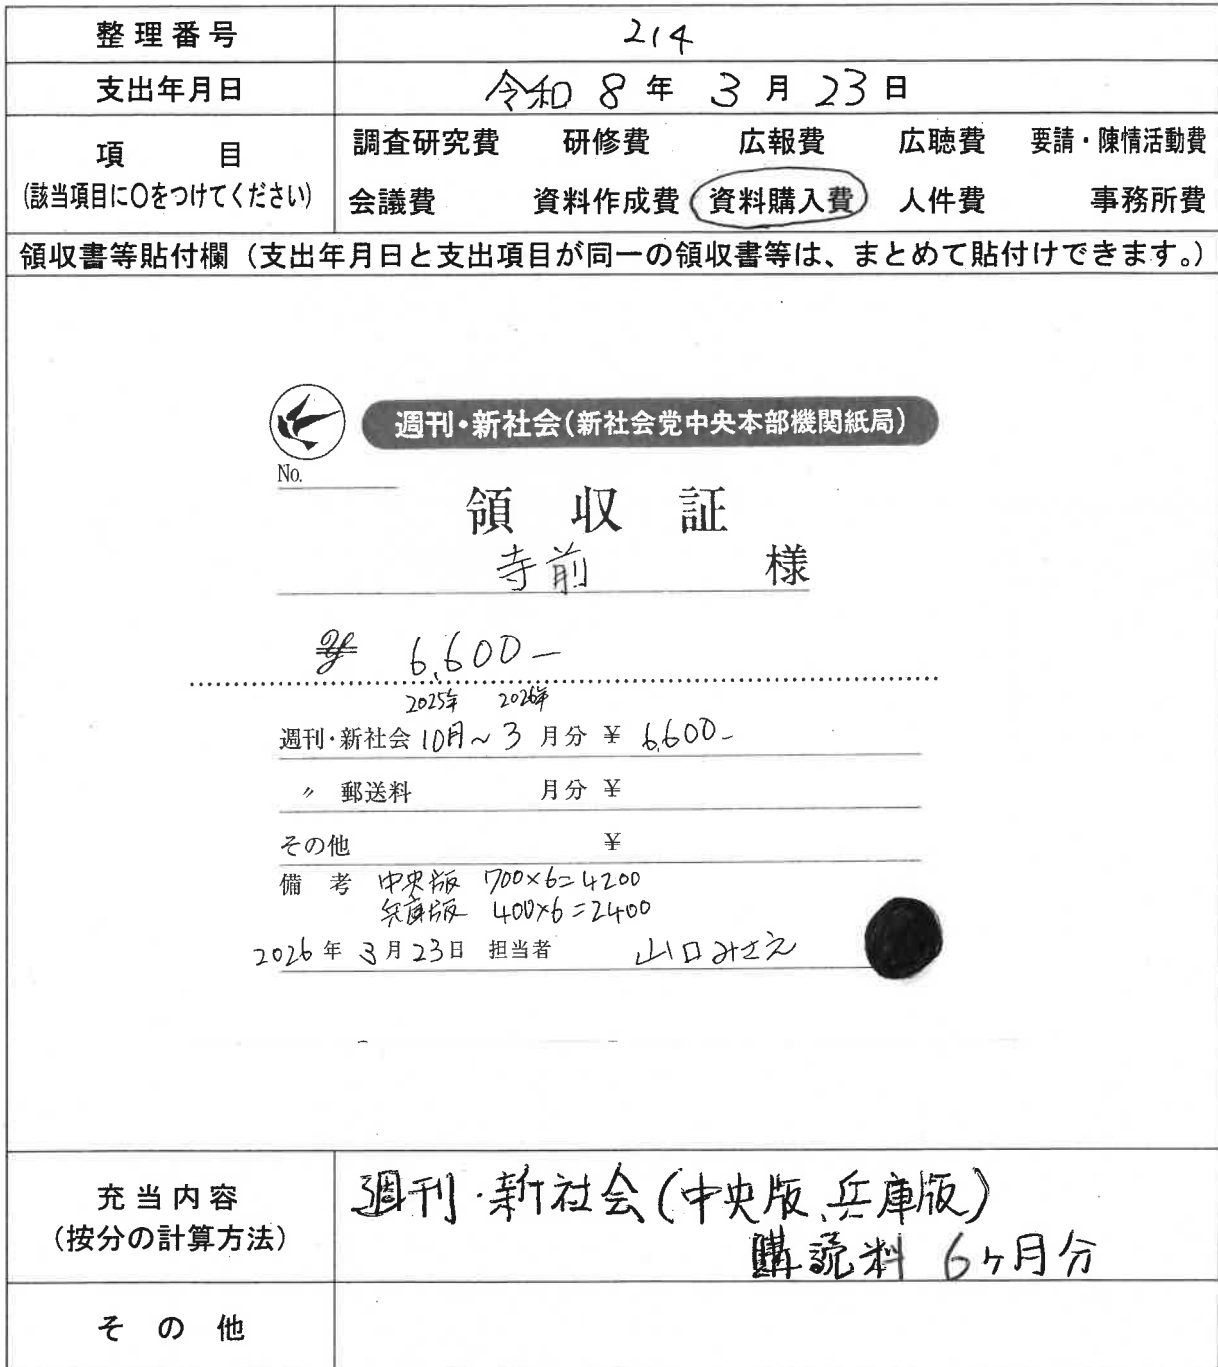 整理番号 214
支出年月日 令和 8 年 3 月 23 日
項 目 調査研究費 研修費 広報費 広聴費 要請・陳情活動費
(該当項目に〇をつけてください) 会議費 資料作成費 資料購入費 人件費 事務所費
領収書等貼付欄（支出年月日と支出項目が同一の領収書等は、まとめて貼付けできます。）
週刊・新社会(新社会党中央本部機関紙局)
No.
領 収 証
寺前 様
¥ 6,600-
2025年 2026年
週刊・新社会 10月～3 月分 ¥ 6,600-
〃 郵送料 月分 ¥
その他 ¥
備 考 中央版 700×6=4200
兵庫版 400×6=2400
2026年 3月23日 担当者 山口みさえ
充当内容 週刊・新社会(中央版、兵庫版)
(按分の計算方法) 購読料 6ヶ月分
そ の 他